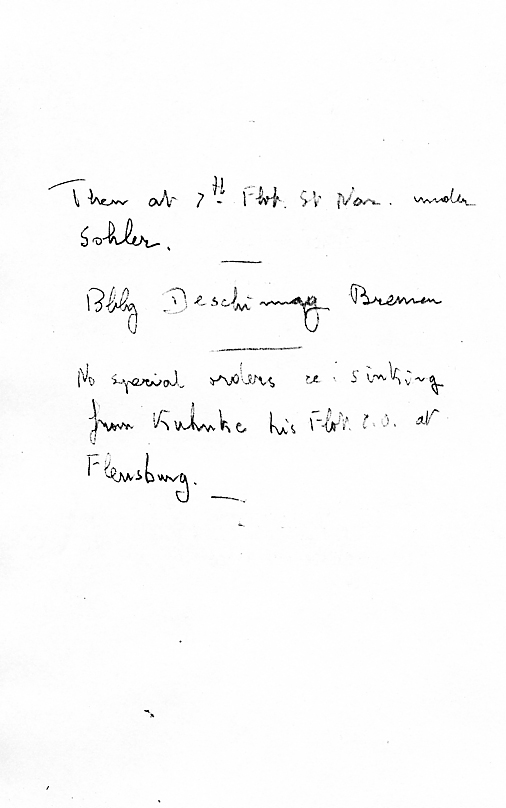 Then at 7th Flot. St Naz. under
Sohler.
Bblg Deschimag Bremen
No special orders re: sinking
from Kuhnke his Flot. C.O. at
Flensburg.